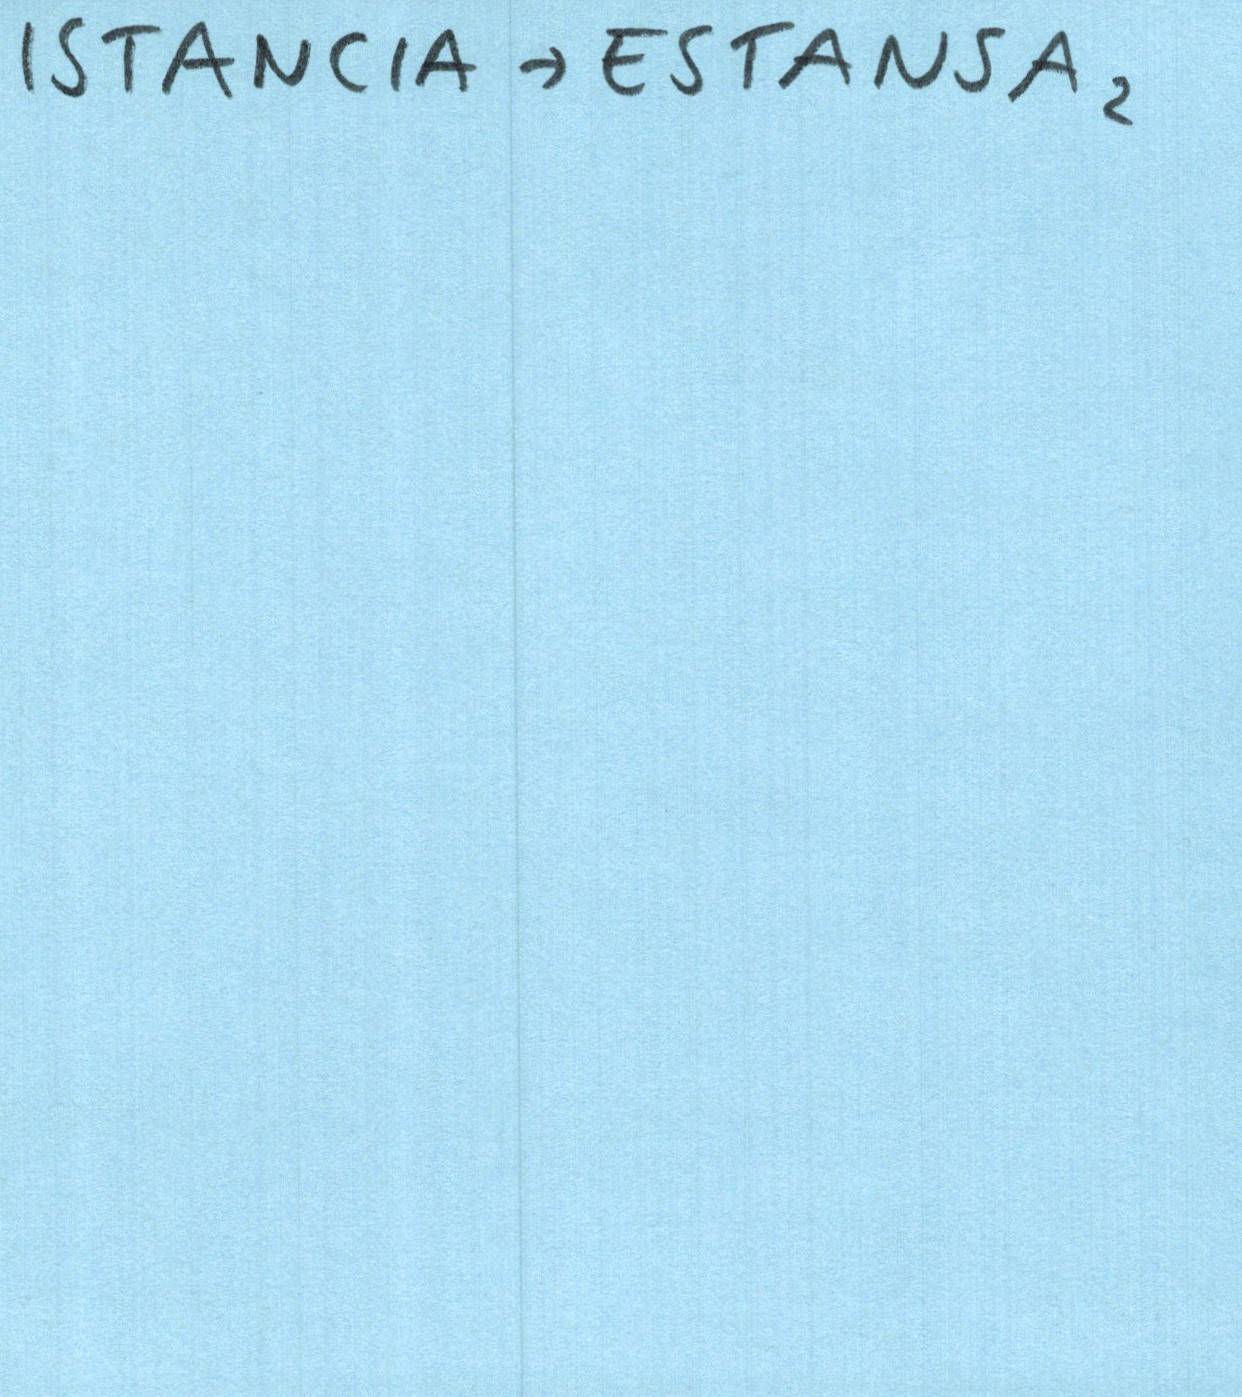 ISTANCIA → ESTANSA₂